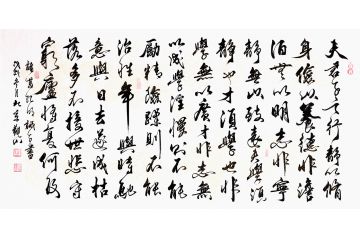 夫君子之行静以修
身儉以養德非澹
泊無以明志非寧
静無以致遠夫學須
静也才須學也非
學無以廣才非志無
以成學淫慢則不能
勵精險躁則不能
治性年與時馳
意與日去遂成枯
落多不接世悲守
窮廬將復何及
諸葛孔明誡子書